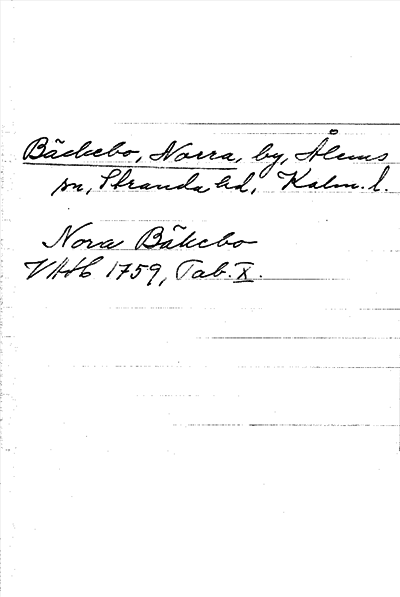 Bäckebo, Norra, by, Ålems
sn, Stranda hd, Kalm. l.
Nora Bäkebo
VAH 1759, Tab. X.